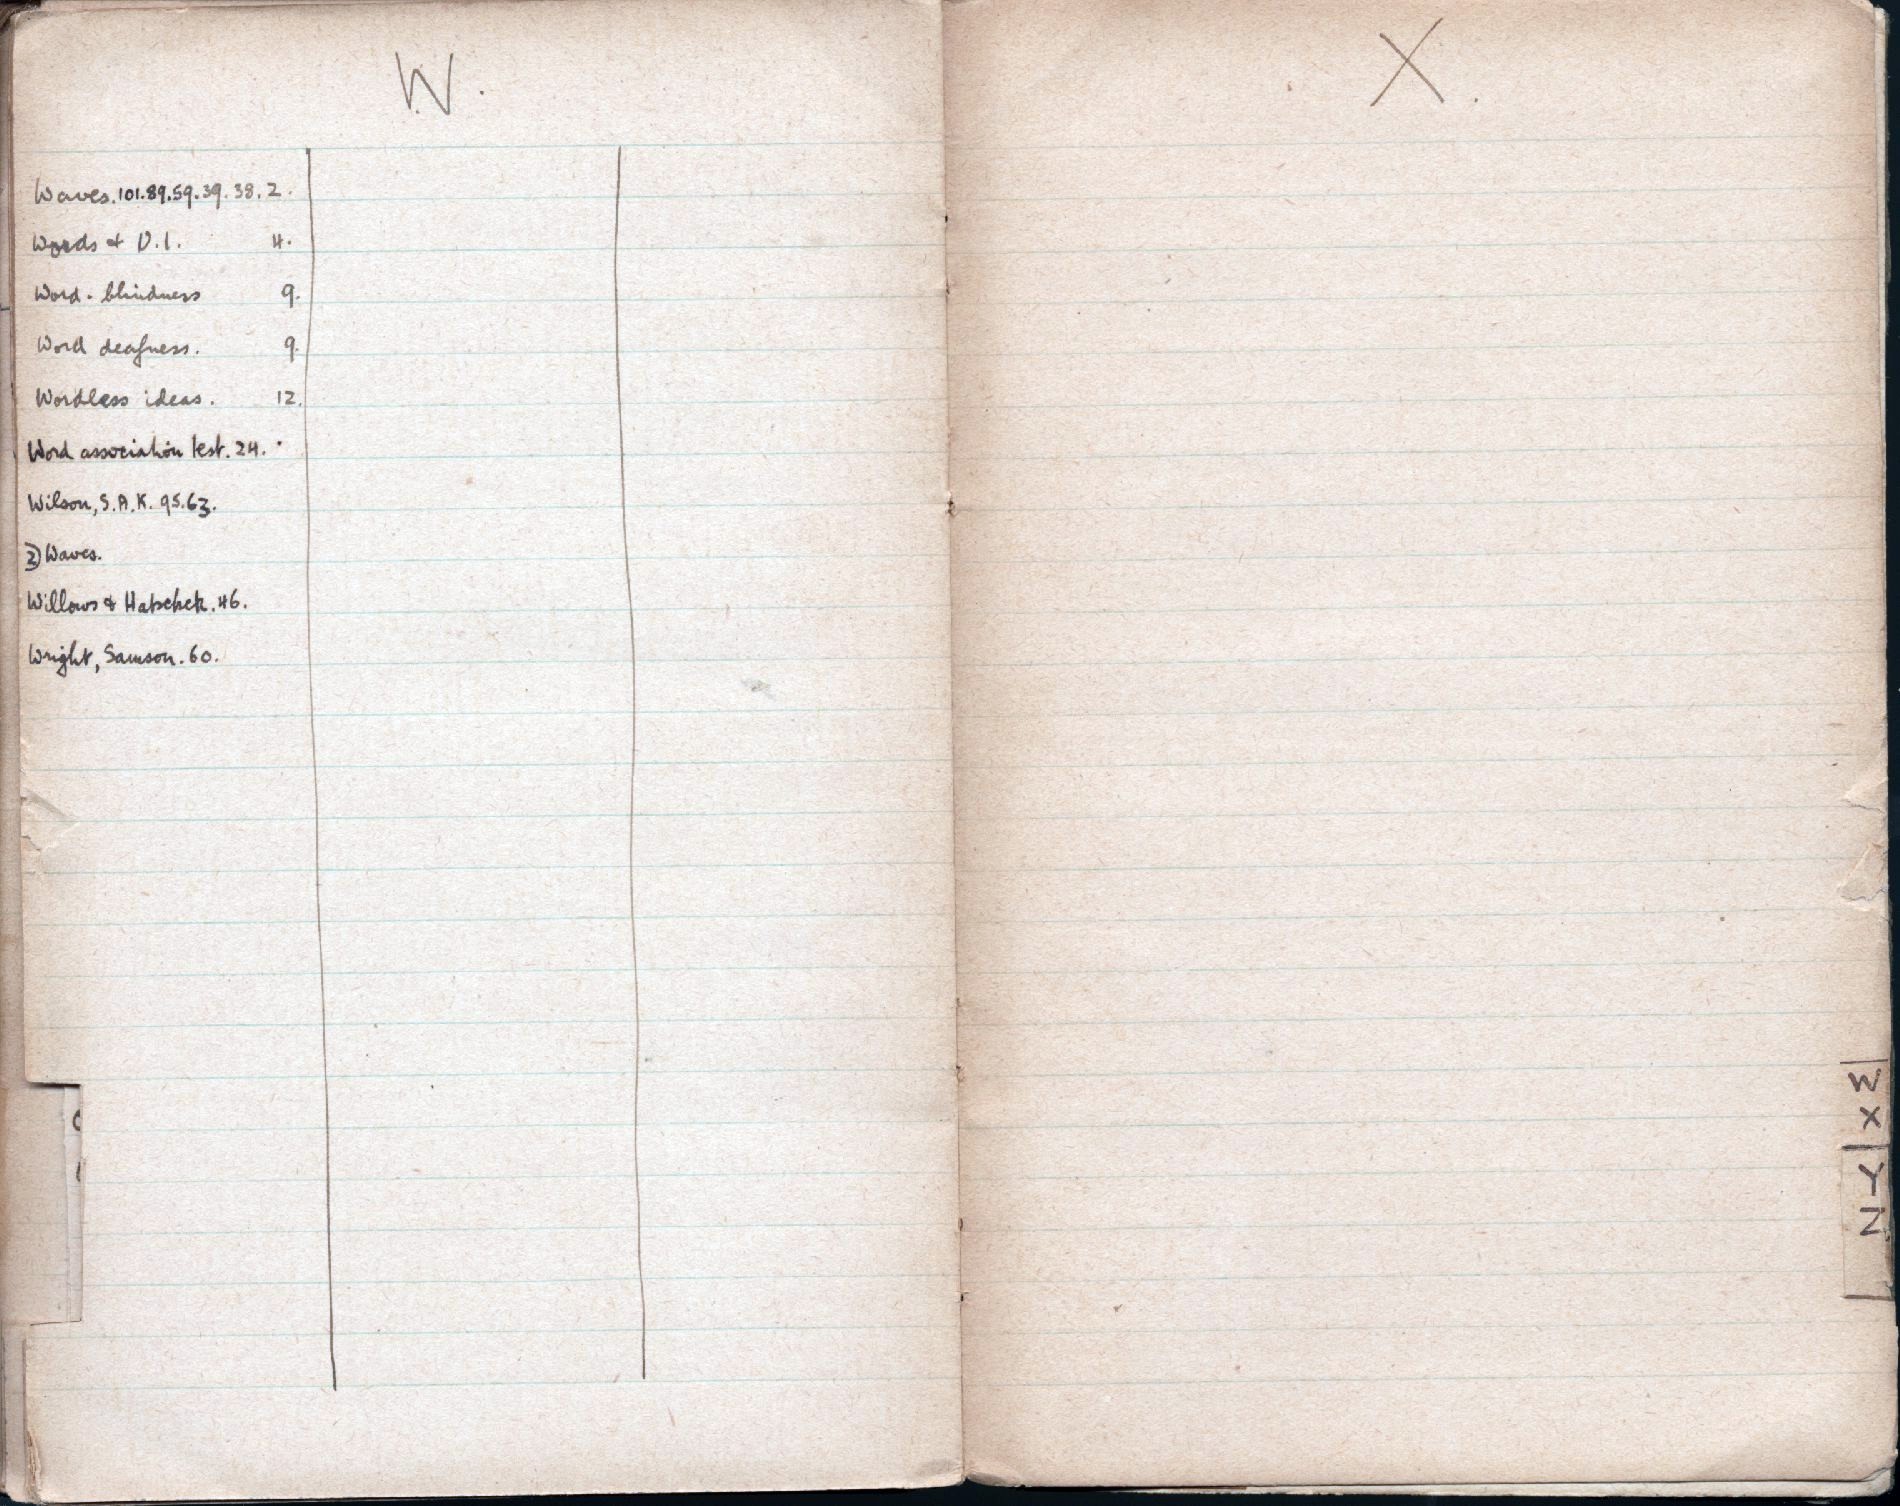 W.
Waves. 101. 89. 59. 39. 38. 2.
Words & D.I. 4.
Word-blindness 9.
Word deafness. 9.
Wordless ideas. 12.
Word association test. 24.
Wilson, S.A.K. 95. 63.
2) Waves.
Willows & Hatschek. 46.
Wright, Samson. 60.
X.
W
X
Y
Z